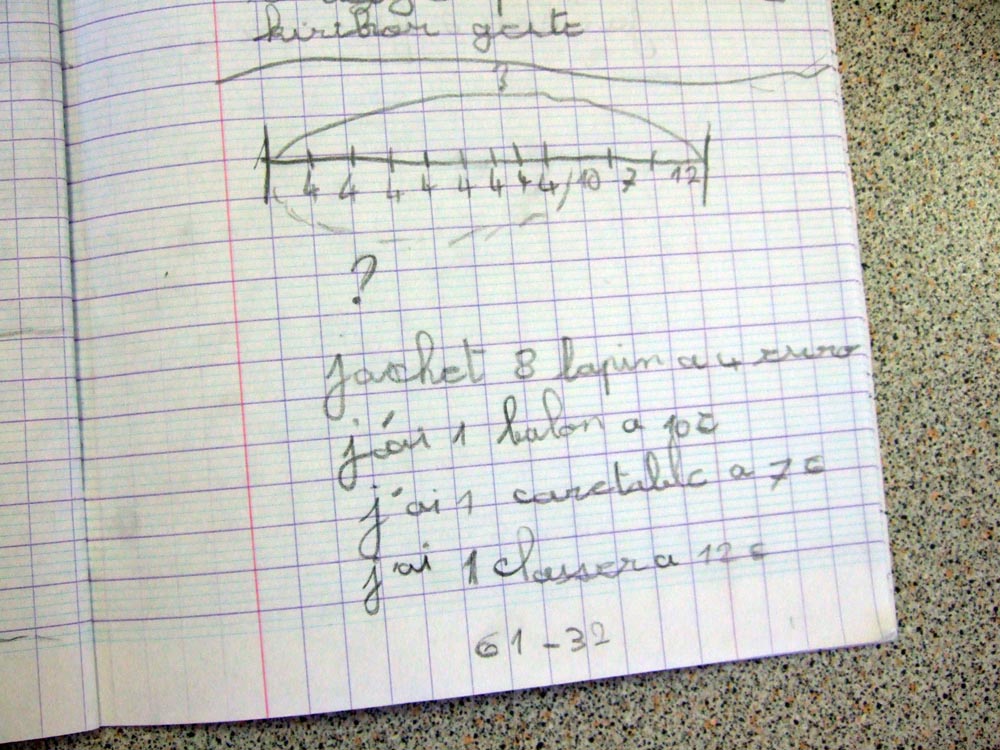 ?
4 4 4 4 4 4 4 4 10 7 12
?
jachet 8 lapin a 4 euro
j'ai 1 balon a 10€
j'ai 1 cartable a 7€
j'ai 1 classer a 12€
61-32